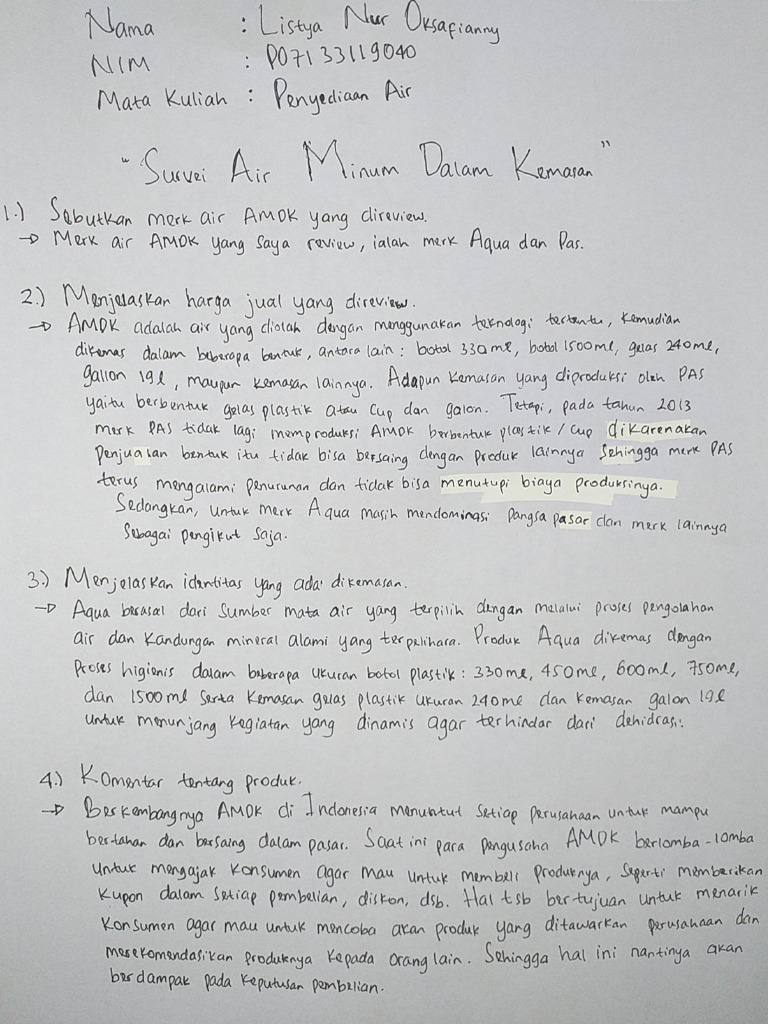 Nama : Listya Nur Oksafianny
NIM : P07133119040
Mata Kuliah : Penyediaan Air
"Survei Air Minum Dalam Kemasan"
1.) Sebutkan merk air AMDK yang direview.
→ Merk air AMDK yang saya review, ialah merk Aqua dan Pas.
2.) Menjelaskan harga jual yang direview.
→ AMDK adalah air yang diolah dengan menggunakan teknologi tertentu, kemudian
dikemas dalam beberapa bentuk, antara lain : botol 330ml, botol 1500ml, gelas 240ml,
gallon 19l, maupun kemasan lainnya. Adapun kemasan yang diproduksi oleh PAS
yaitu berbentuk gelas plastik atau cup dan galon. Tetapi, pada tahun 2013
merk PAS tidak lagi memproduksi AMDK berbentuk plastik / cup dikarenakan
penjualan bentuk itu tidak bisa bersaing dengan produk lainnya sehingga merk PAS
terus mengalami penurunan dan tidak bisa menutupi biaya produksinya.
Sedangkan, untuk merk Aqua masih mendominasi pangsa pasar dan merk lainnya
sebagai pengikut saja.
3.) Menjelaskan identitas yang ada dikemasan.
→ Aqua berasal dari sumber mata air yang terpilih dengan melalui proses pengolahan
air dan kandungan mineral alami yang terpelihara. Produk Aqua dikemas dengan
proses higienis dalam beberapa ukuran botol plastik : 330ml, 450ml, 600ml, 750ml,
dan 1500ml serta kemasan gelas plastik ukuran 240ml dan kemasan galon 19l
untuk menunjang kegiatan yang dinamis agar terhindar dari dehidrasi.
4.) Komentar tentang produk.
→ Berkembangnya AMDK di Indonesia menuntut setiap perusahaan untuk mampu
bertahan dan bersaing dalam pasar. Saat ini para pengusaha AMDK berlomba-lomba
untuk mengajak konsumen agar mau untuk membeli produknya, seperti memberikan
kupon dalam setiap pembelian, diskon, dsb. Hal tsb bertujuan untuk menarik
konsumen agar mau untuk mencoba akan produk yang ditawarkan perusahaan dan
merekomendasikan produknya kepada orang lain. Sehingga hal ini nantinya akan
berdampak pada keputusan pembelian.